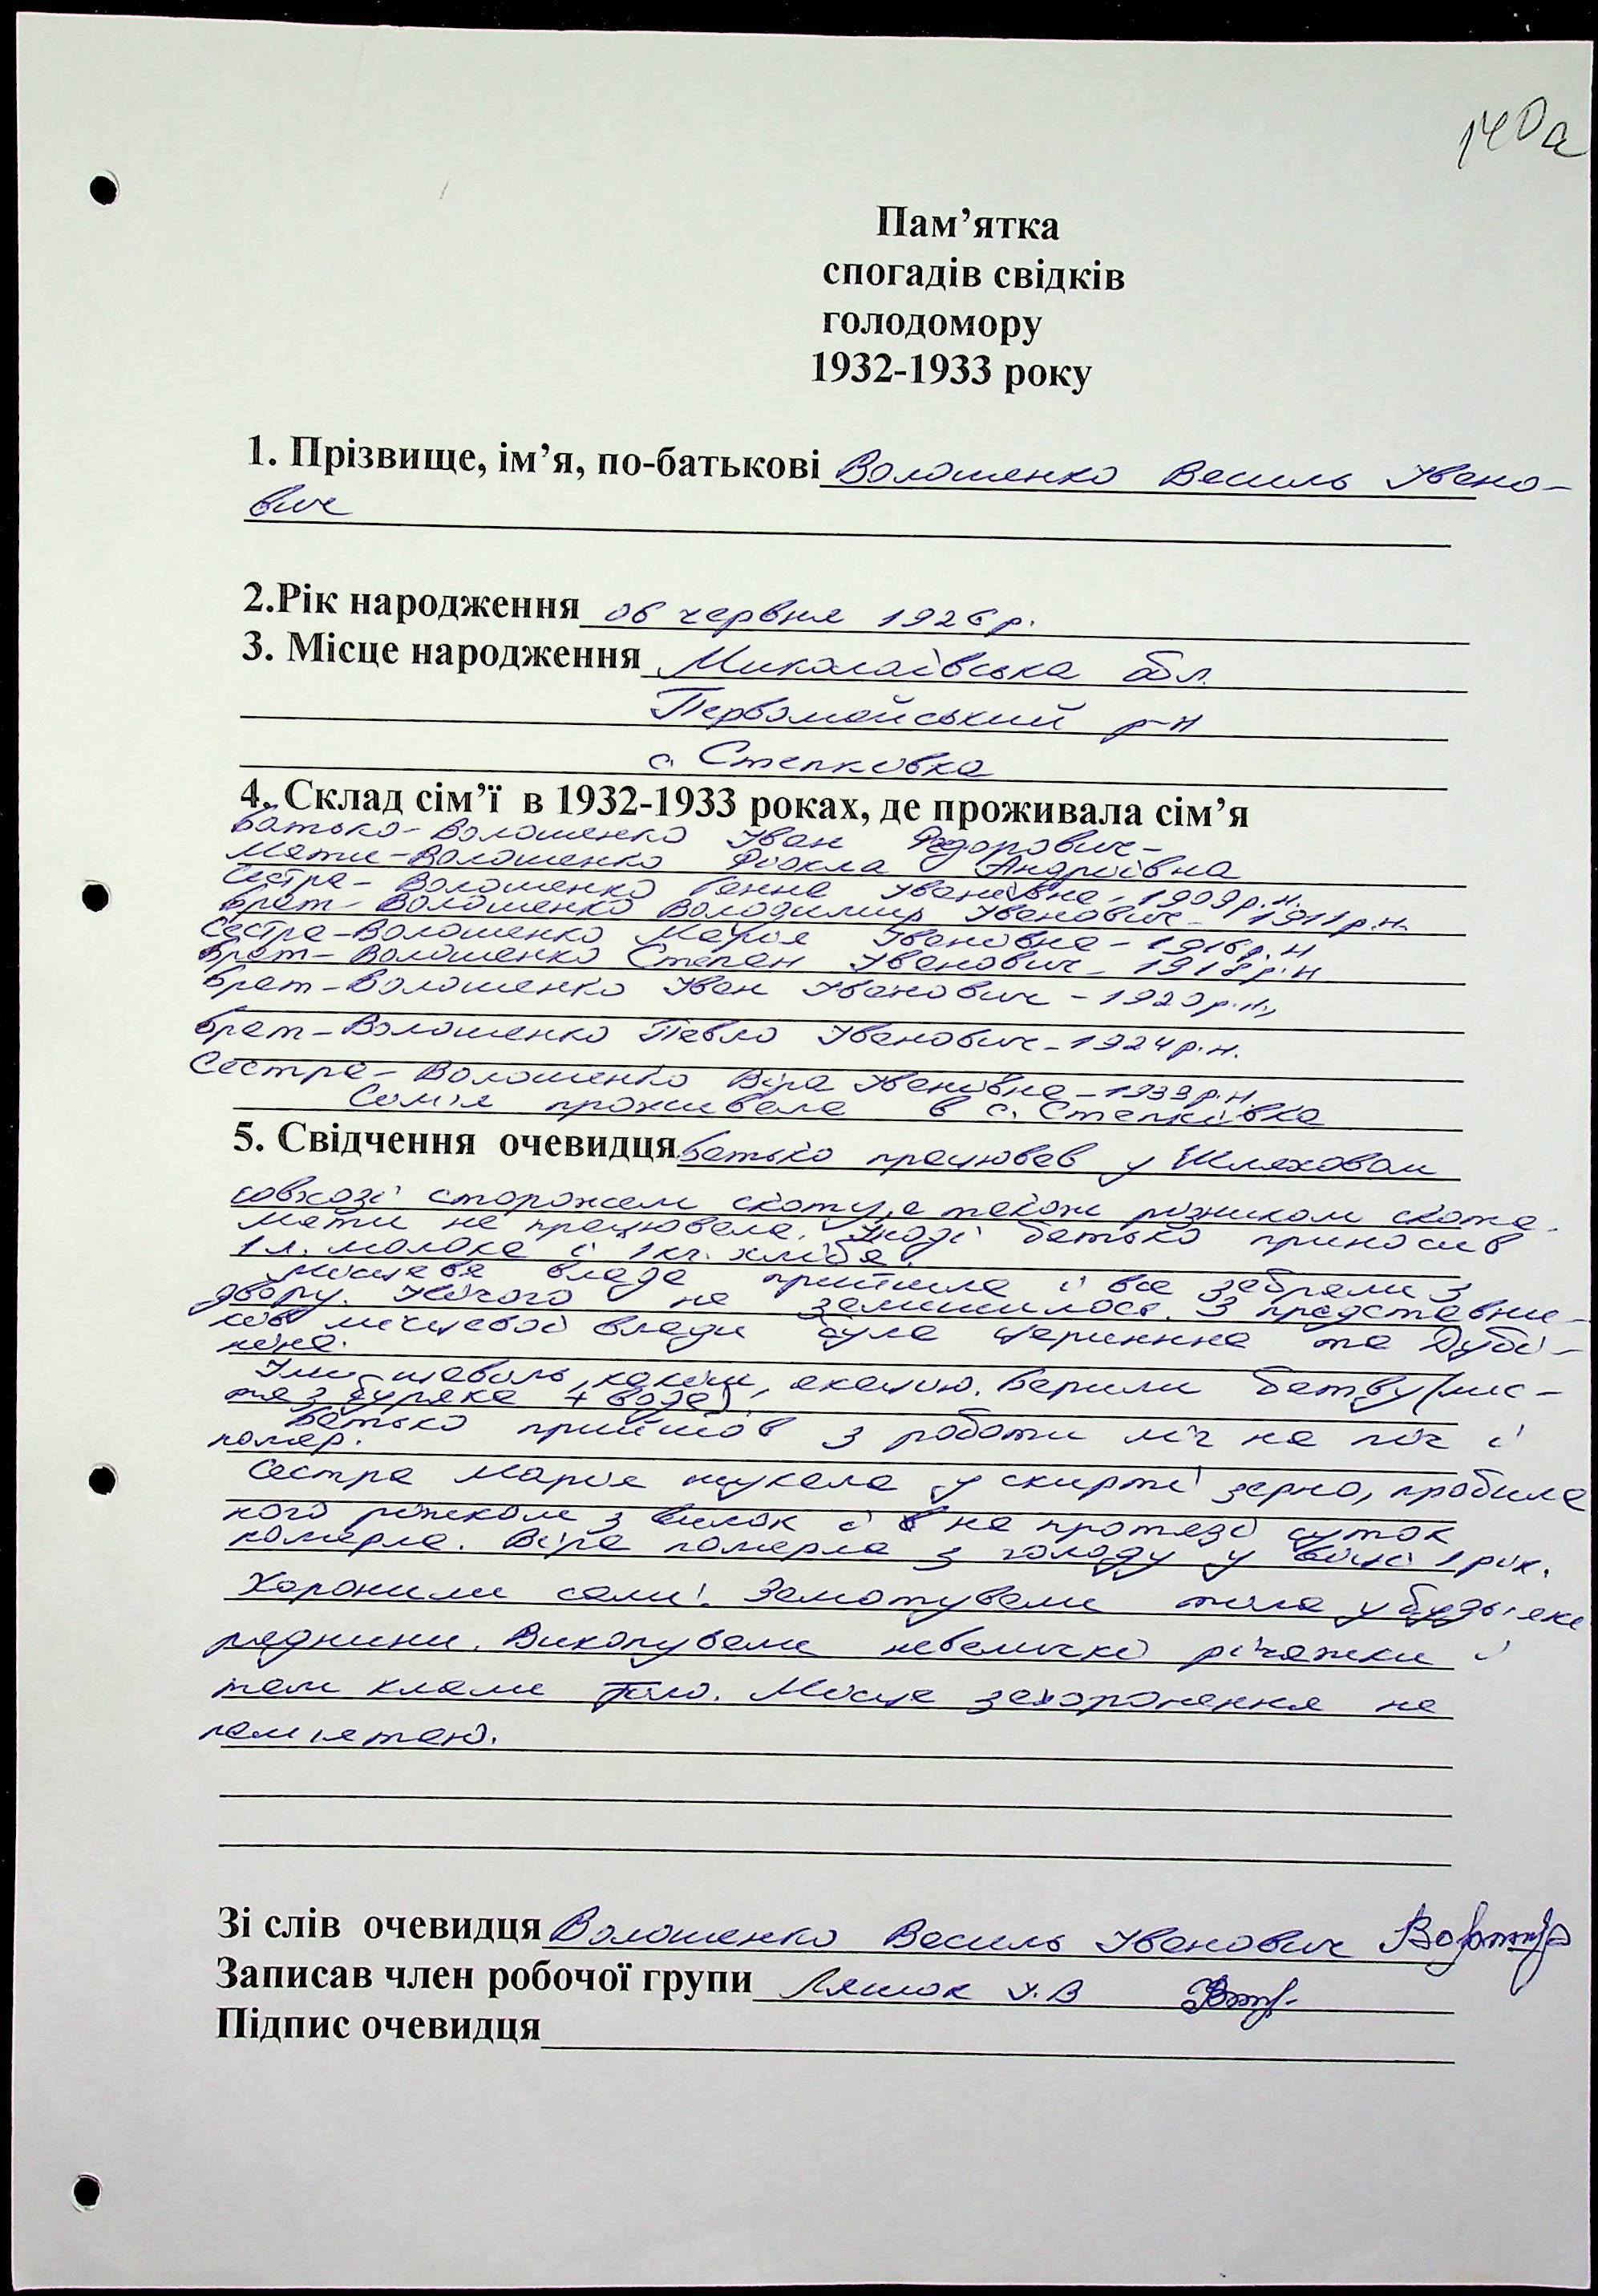 140а
Пам’ятка
спогадів свідків
голодомору
1932-1933 року
1. Прізвище, ім’я, по-батькові Волошенко Василь Івано-
вич
2.Рік народження 06 червня 1926 р.
3. Місце народження Миколаївська обл.
Первомайський р-н
с. Степковка
4. Склад сім’ї в 1932-1933 роках, де проживала сім’я
Батько-Волошенко Іван Федорович-
Мати-Волошенко Фіокла Андріївна
Сестра-Волошенко Ганна Іванівна-1909р.н.
Брат-Волошенко Володимир Іванович-1911р.н.
Сестра-Волошенко Марія Іванівна-1916р.н
Брат-Волошенко Степан Іванович-1918р.н
Брат-Волошенко Іван Іванович-1920р.н.,
Брат-Волошенко Павло Іванович-1924р.н.
Сестра-Волошенко Віра Іванівна-1933р.н.
Сім'я проживала в с. Степківка
5. Свідчення очевидця Батько працював у Шляховом
совхозі сторожем скоту, а також різником скота.
Мати не працювала. Іноді батько приносив
1 л. молока і 1 кг. хліба.
Місцева влада прийшла і все забрали з
двору. Нічого не залишилося. З представни-
ків місцевої влади була та Дубі-
Їли щаволь, калачи, акацию. Варили батву (лис-
тя з буряка + вода).
Батько прийшов з роботи ліг на піч і
помер.
Сестра Марія шукала у скирті зерно, пробила
ногу ріжком з вилок і на протязі суток
померла. Віра померла з голоду у віці 1 рік.
Хоронили самі. Замотували тіла у будь-яке
ряднини. Викопували невеличкі річажки і
там клали тіло. Місце захоронення не
пам'ятаю.
Зі слів очевидця Волошенко Василь Іванович
Записав член робочої групи Ляшок І.В
Підпис очевидця